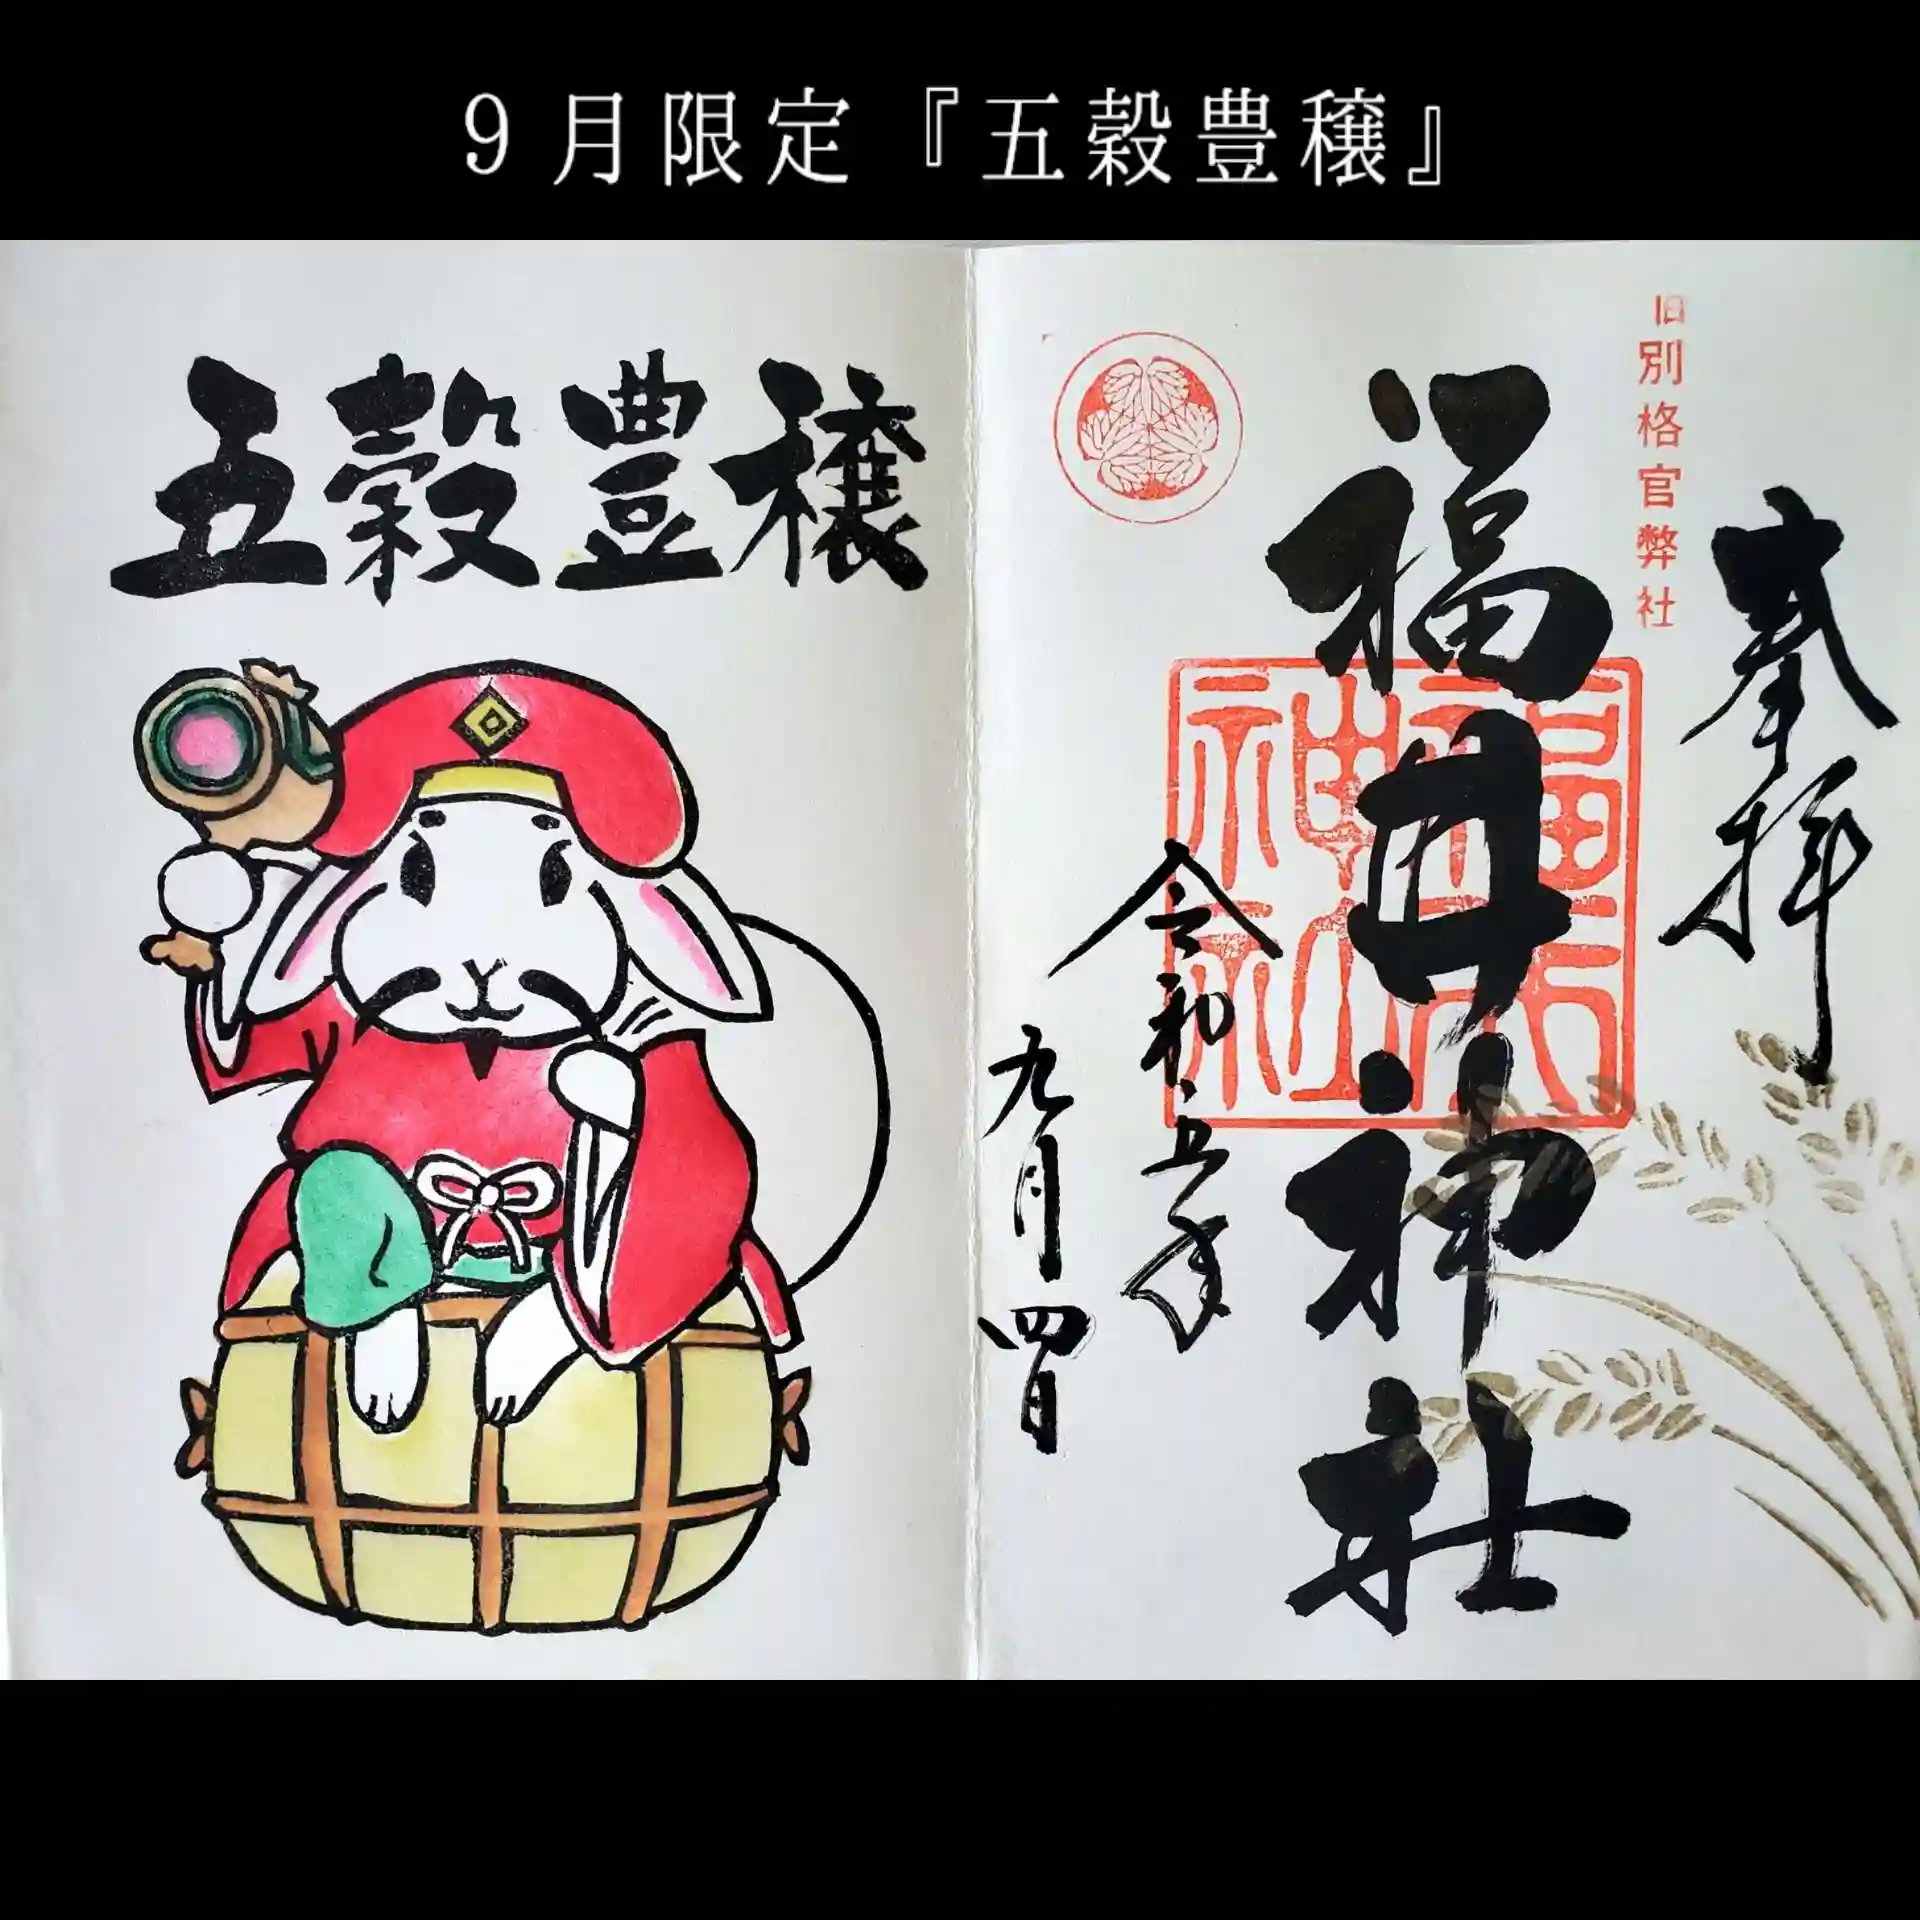 9月限定『五穀豊穣』
五穀豊穣
奉拝
旧別格官弊社
福井神社
福井神社
令和五年
九月四日